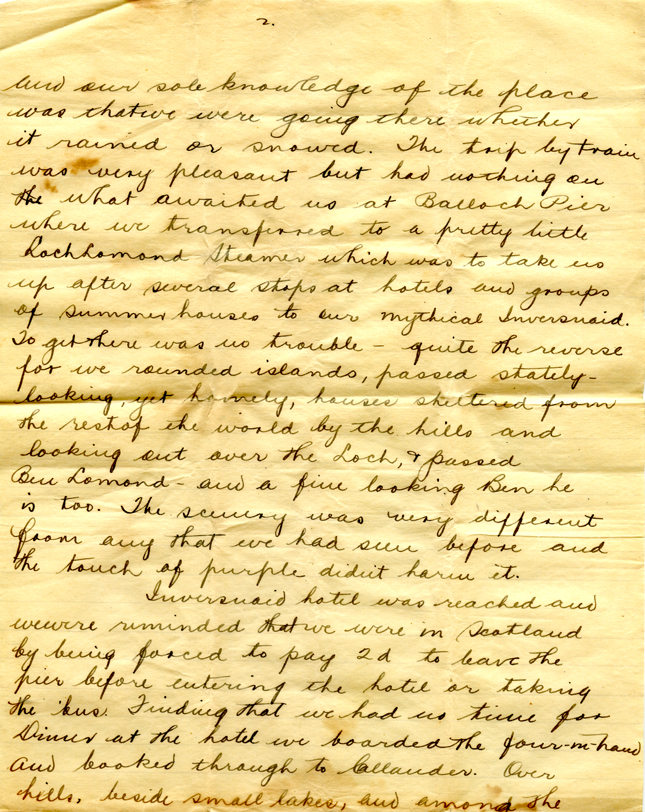 2.
and our sole knowledge of the place
was that we were going there whether
it rained or snowed. The trip by train
was very pleasant but had nothing on
the what awaited us at Balloch Pier
where we transferred to a pretty little
Loch Lomond Steamer which was to take us
up after several stops at hotels and groups
of summer houses to our mythical Inversnaid.
To get there was no trouble - quite the reverse
for we rounded islands, passed stately-
looking, yet homely, houses sheltered from
the rest of the world by the hills and
looking out over the Loch, & passed
Ben Lomond - and a fine looking Ben he
is too. The scenery was very different
from any that we had seen before and
the touch of purple didn't harm it.
Inversnaid hotel was reached and
we were reminded that we were in Scotland
by being forced to pay 2d to leave the
pier before entering the hotel or taking
the 'bus. Finding that we had no time for
Dinner at the hotel we boarded the four-in-hand
and booked through to Callander. Over
hills, beside small lakes, and among the